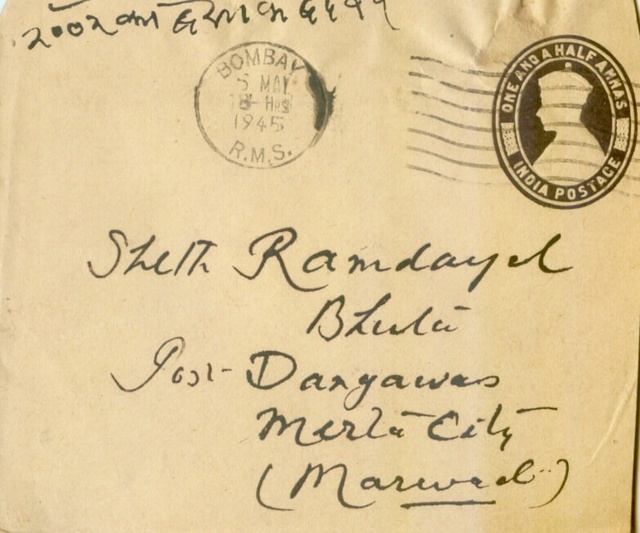 २००२ का
BOMBAY
5 MAY
1945
R.M.S.
ONE AND A HALF ANNAS
INDIA POSTAGE
Sheth Ramdayal
Bhutā
Post- Dangawas
Mertā City
(Marwad)